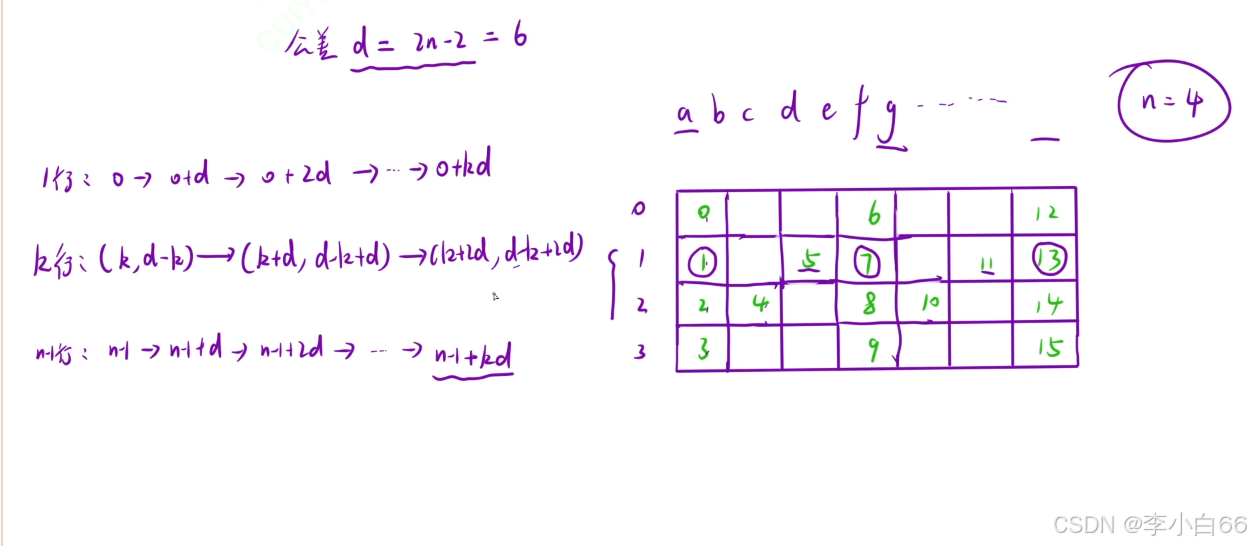 公差 d = 2n-2 = 6
a b c d e f g ......
n = 4
1行: 0 → 0+d → 0+2d → ... → 0+kd
k行: (k, d-k) → (k+d, d-k+d) → (k+2d, d-k+2d)
n-1行: n-1 → n-1+d → n-1+2d → ... → n-1+kd
0 0 6 12
1 1 5 7 11 13
2 2 4 8 10 14
3 3 9 15
CSDN @李小白66